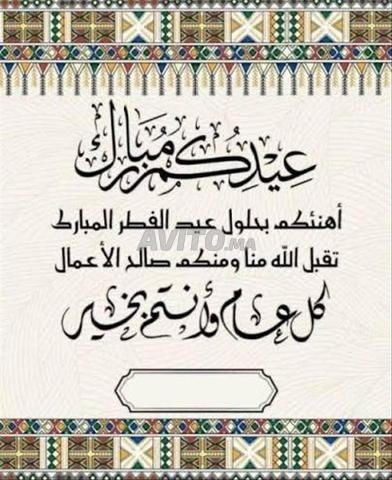 عِيْدُكُم مُبَارَك
أهنئكم بحلول عيد الفطر المبارك
AVITO.MA
تقبل الله منا ومنكم صالح الأعمال
كل عام وأنتم بخير